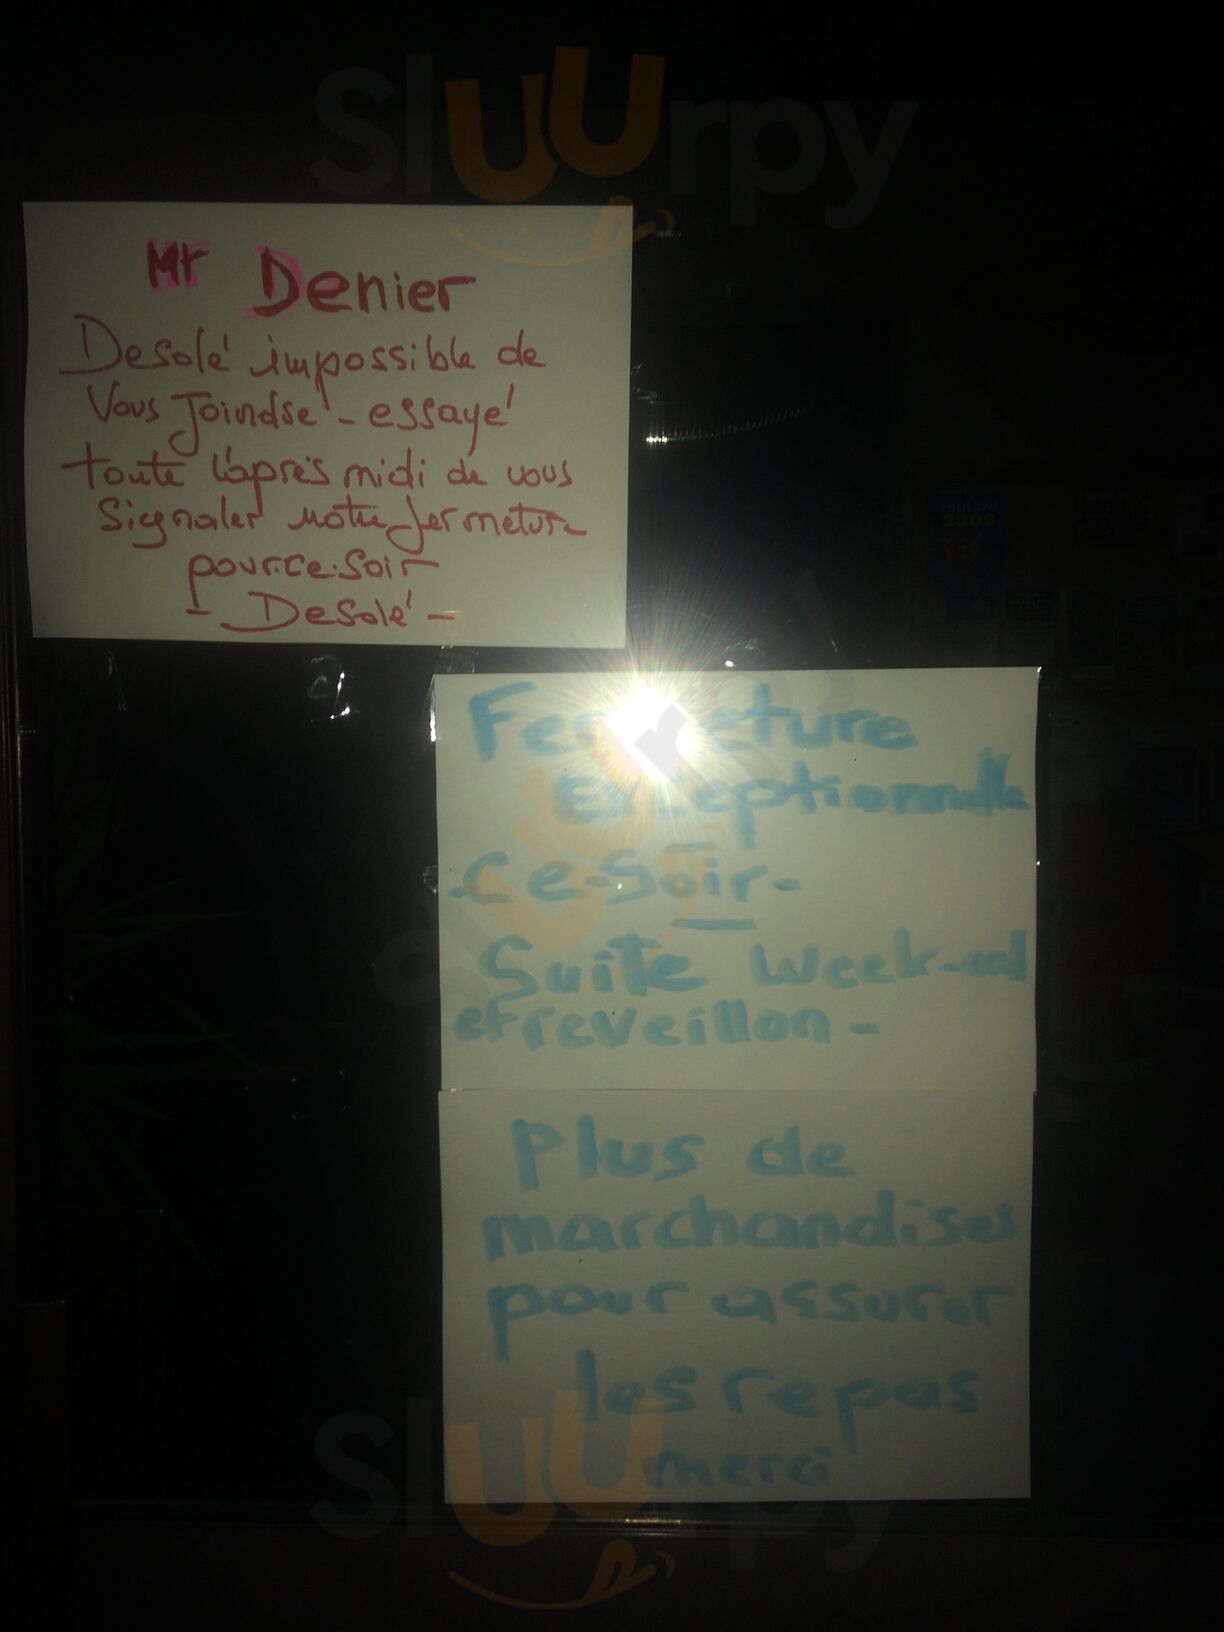 Sluurpy
Mr Denier
Desolé impossible de
Vous Joindse - essayé
toute l'après midi de vous
Signaler notre fermeture
pour ce soir
- Desolé -
Fermeture
Exceptionnelle
-Ce-Soir-
Suite week-end
et reveillon -
Plus de
marchandises
pour assurer
les repas
merci
Sluurpy
routard
2009